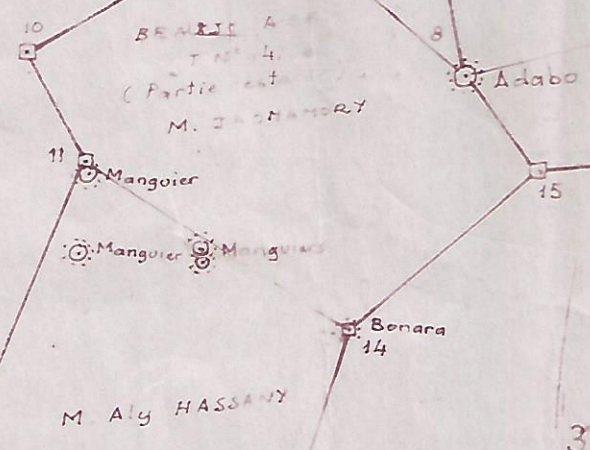 10
8
T N° 4
(Partie
M.
Adabo
11
Manguier
15
Manguier
Manguiers
Bonara
14
M Aly HASSANY
3